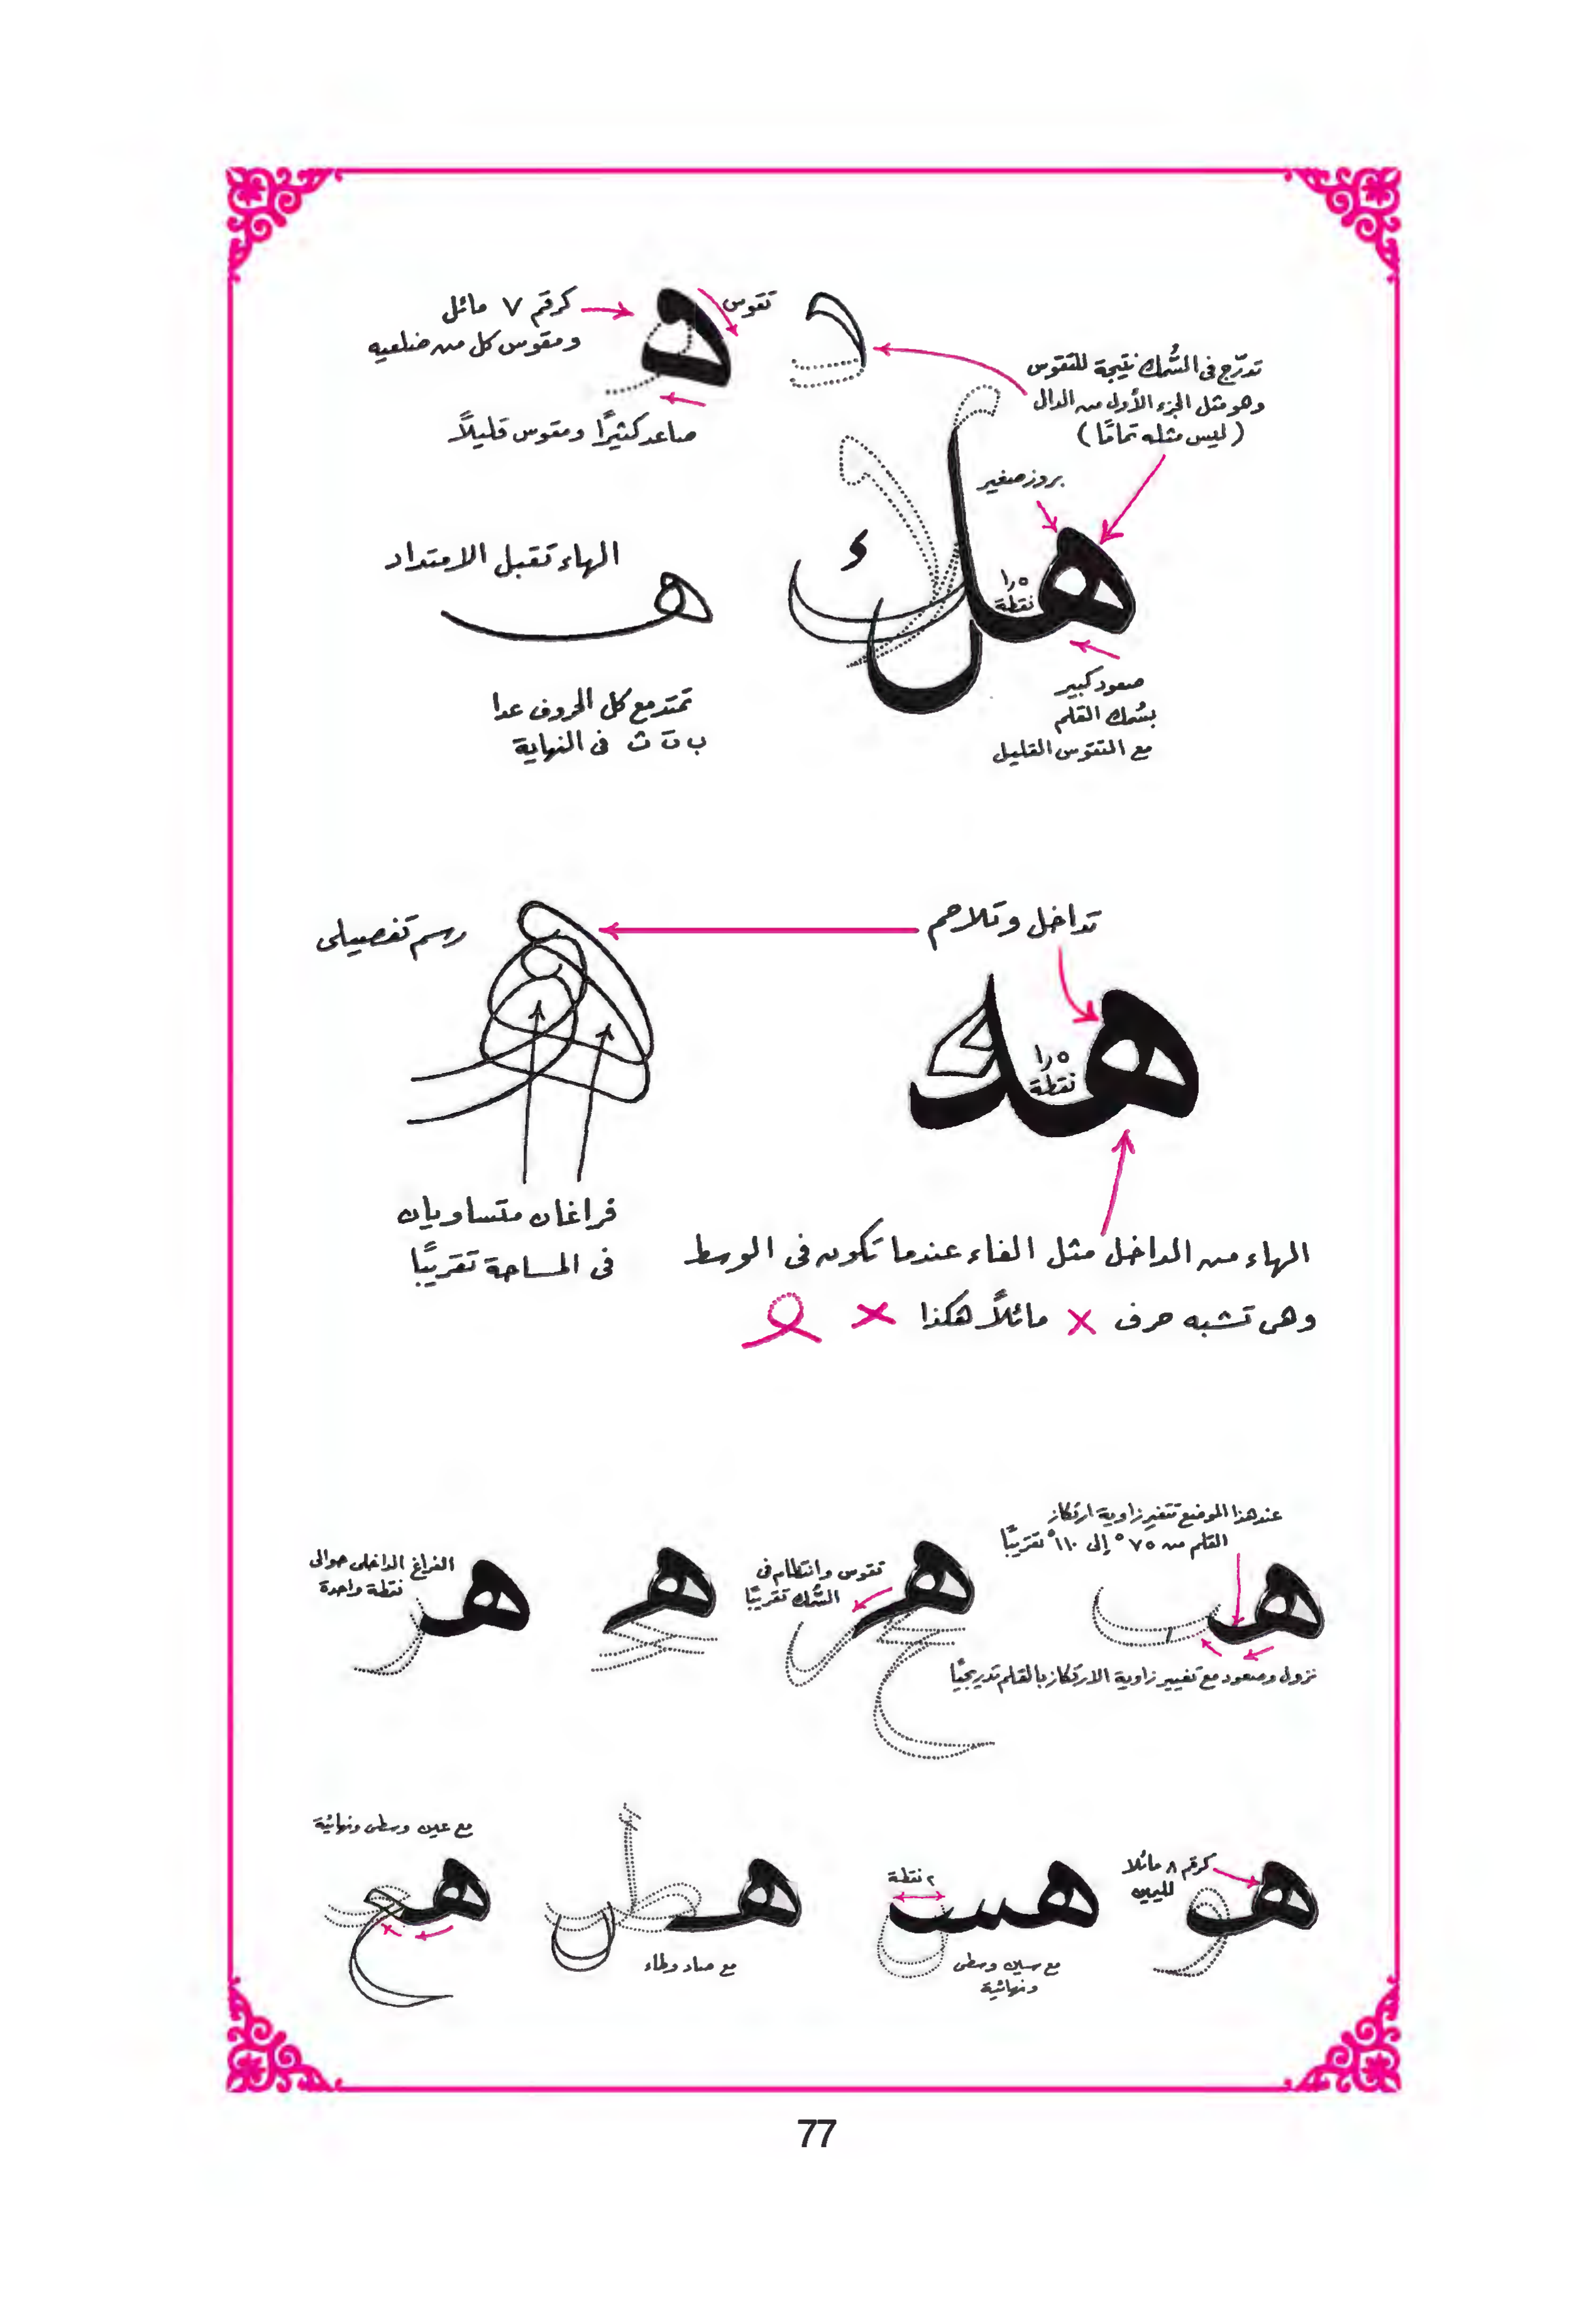 كرقم ٧ مائل
ومقوس كل من ضلعيه
تقوس
صاعد كثيرًا ومقوس قليلاً
تدرّج فى السُّمك نتيجة للتقوس
وهو مثل الجزء الأول من الدال
(ليس مثله تمامًا)
بروز صغير
هل
ك
١٫٥
نقطة
صعود كبير
بسُمك القلم
مع التقوس القليل
الهاء تقبل الامتداد
هـ
تمتد مع كل الحروف عدا
ب ت ث فى النهاية
تداخل وتلاحم
رسم تفصيلى
هد
١٫٥
نقطة
فراغان متساويان
فى المساحة تقريبًا
الهاء من الداخل مثل الفاء عندما تكون فى الوسط
وهى تشبه حرف × مائلاً هكذا ×
عند هذا الموضع تتغير زاوية ارتكاز
القلم من ٧٥° إلى ١١٠° تقريبًا
تقوس وانتظام فى
السُّمك تقريبًا
الفراغ الداخلى حوالى
نقطة واحدة
نزول وصعود مع تغيير زاوية الارتكاز بالقلم تدريجيًا
كرقم ٨ مائلا
لليمين
٢ نقطة
مع سين وسطى
ونهائية
مع صاد وطاء
مع عين وسطى ونهائية
77